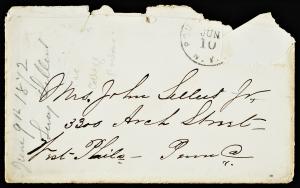 June 9th 1872
JUN
10
N.Y.
Mrs. John Sellers Jr.
3300 Arch Street
West Phila - Penn a